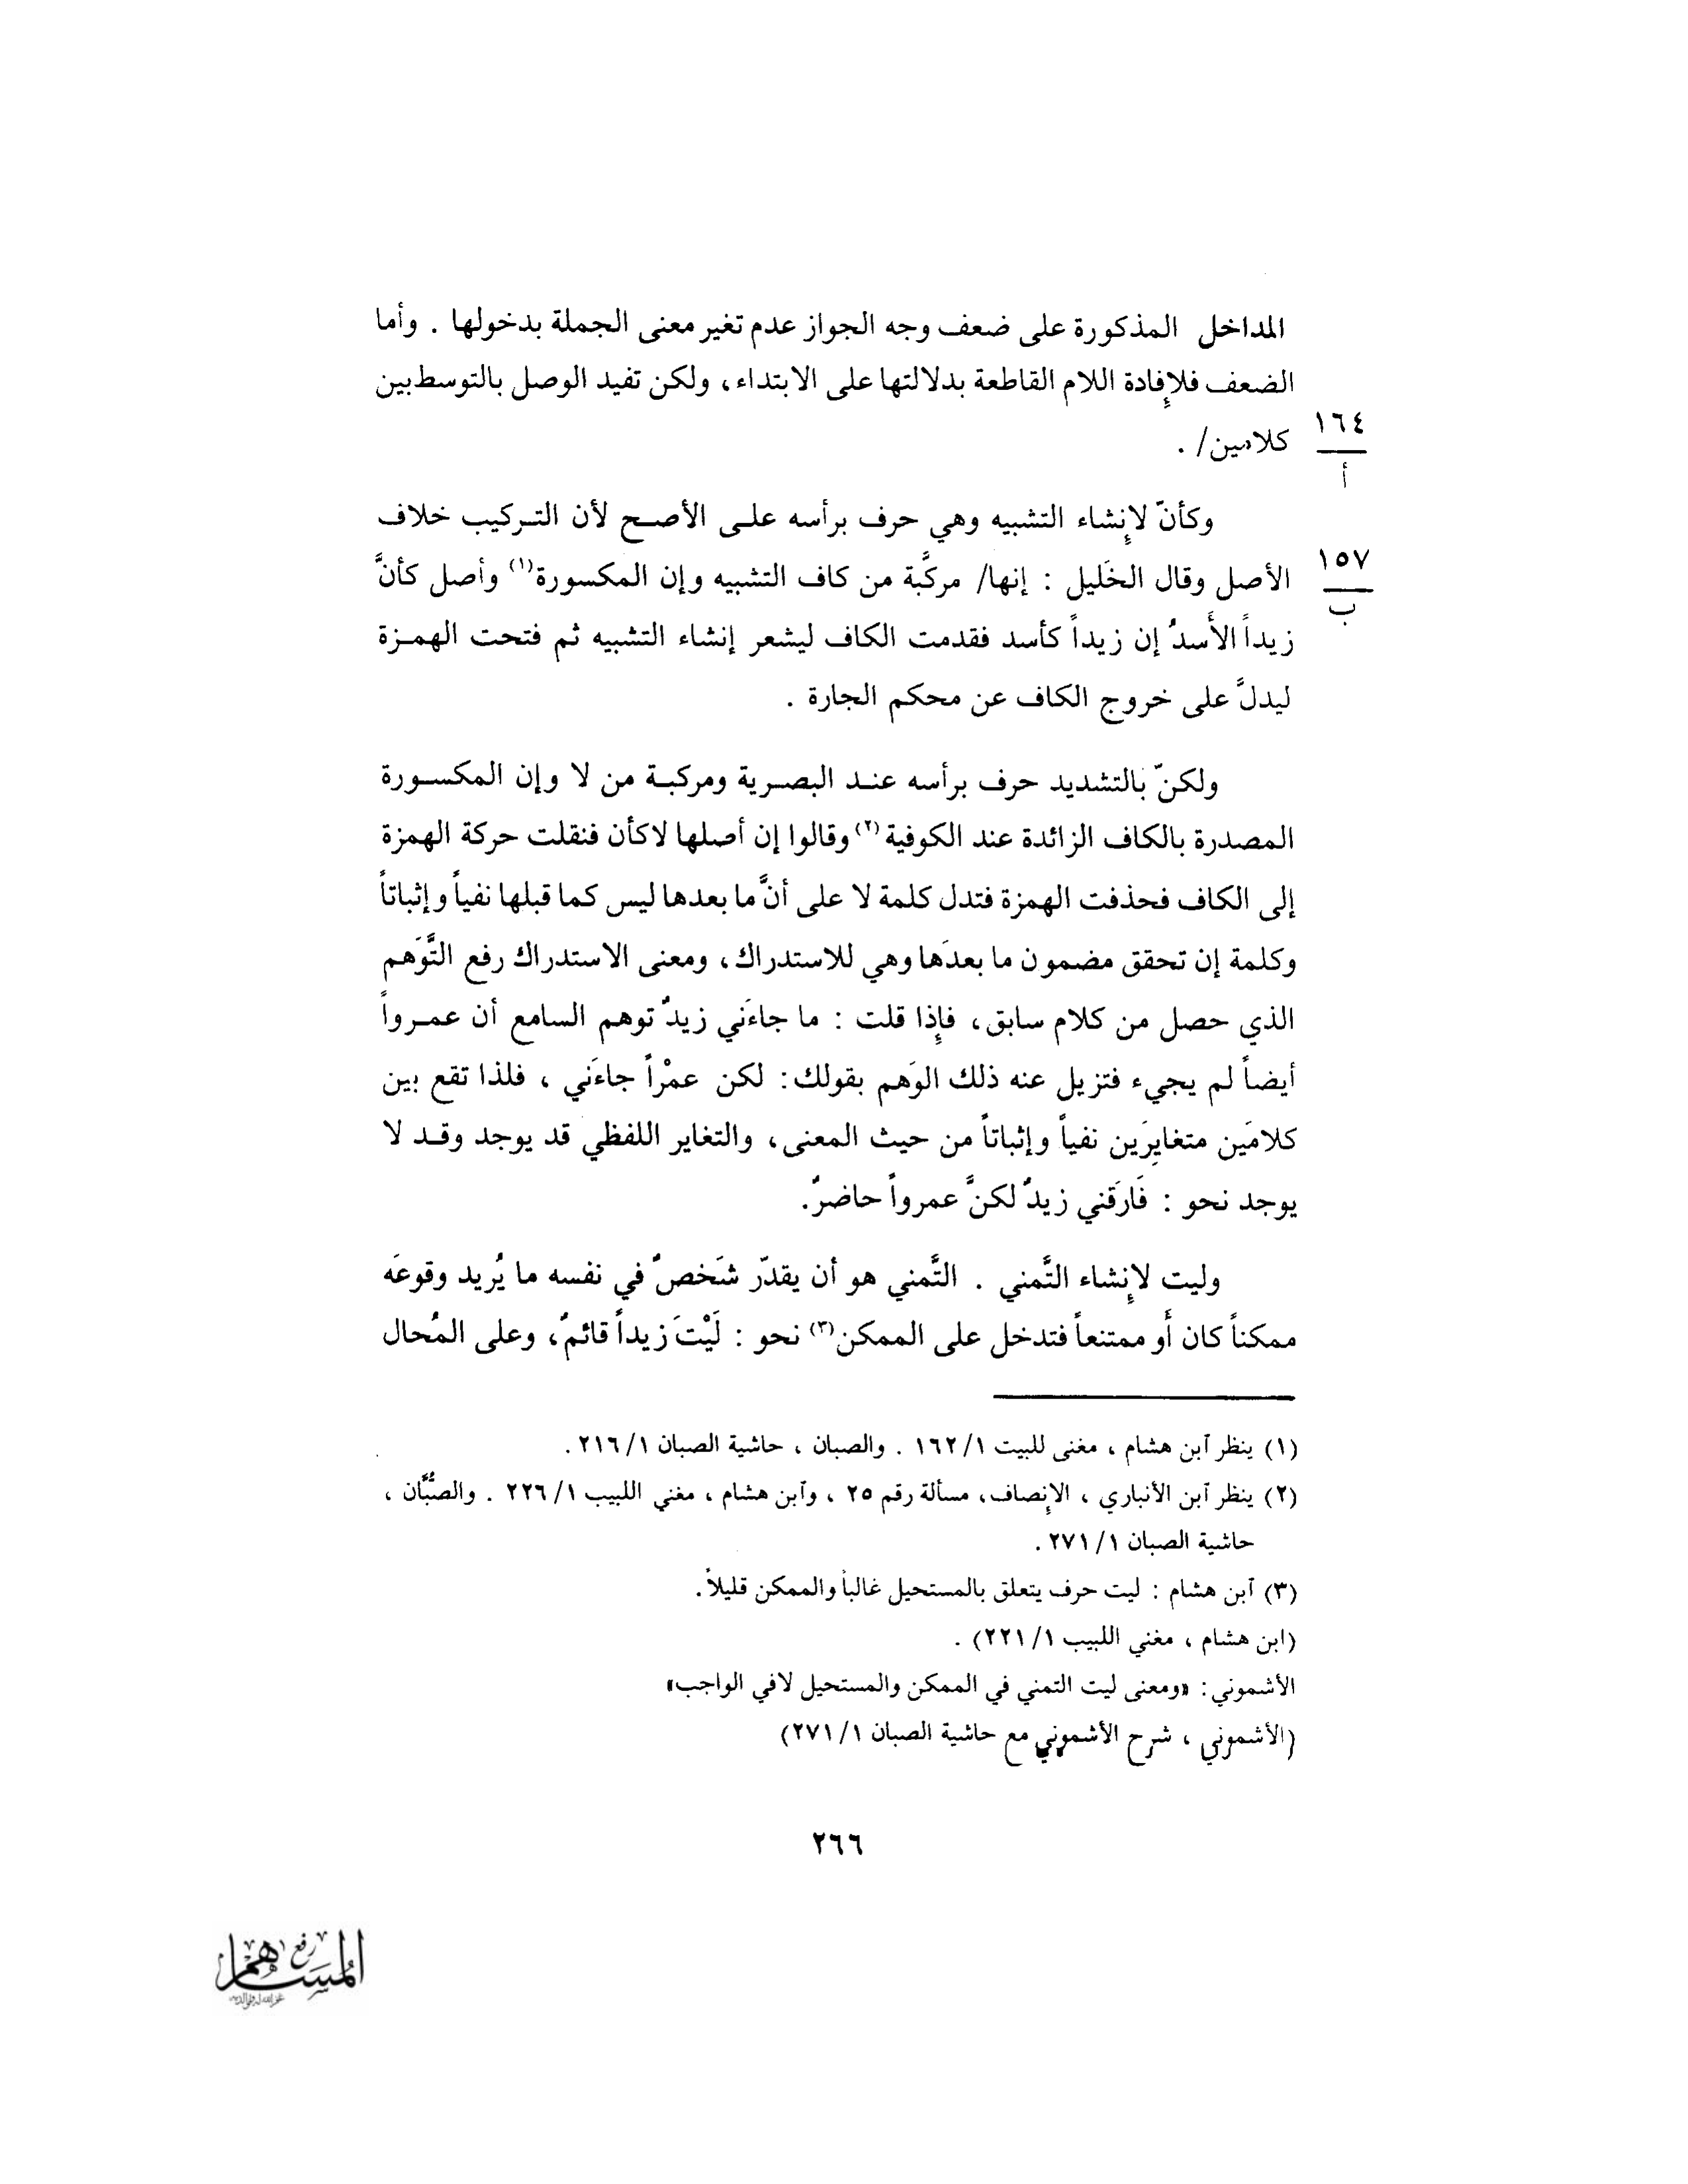 المداخل المذكورة على ضعف وجه الجواز عدم تغير معنى الجملة بدخولها . وأما
الضعف فلإفادة اللام القاطعة بدلالتها على الابتداء، ولكن تفيد الوصل بالتوسط بين
كلامين/ .
١٦٤
أ
وكأنّ لإنشاء التشبيه وهي حرف برأسه على الأصح لأن التركيب خلاف
الأصل وقال الخَليل : إنها/ مركَّبة من كاف التشبيه وإن المكسورة(١) وأصل كأنَّ
١٥٧
ب
زيداً الأَسدُ إن زيداً كأسد فقدمت الكاف ليشعر إنشاء التشبيه ثم فتحت الهمزة
ليدلَّ على خروج الكاف عن محكم الجارة .
ولكنّ بالتشديد حرف برأسه عند البصرية ومركبة من لا وإن المكسورة
المصدرة بالكاف الزائدة عند الكوفية(٢) وقالوا إن أصلها لاكأن فنقلت حركة الهمزة
إلى الكاف فحذفت الهمزة فتدل كلمة لا على أنَّ ما بعدها ليس كما قبلها نفياً وإثباتاً
وكلمة إن تحقق مضمون ما بعدَها وهي للاستدراك، ومعنى الاستدراك رفع التَّوَهم
الذي حصل من كلام سابق، فإذا قلت : ما جاءَني زيدٌ توهم السامع أن عمرواً
أيضاً لم يجيء فتزيل عنه ذلك الوَهم بقولك: لكن عمْراً جاءَني ، فلذا تقع بين
كلامَين متغايِرَين نفياً وإثباتاً من حيث المعنى، والتغاير اللفظي قد يوجد وقد لا
يوجد نحو : فَارَقني زيدٌ لكنَّ عمرواً حاضرٌ.
وليت لإنشاء التَّمني . التَّمني هو أن يقدّر شَخصٌ في نفسه ما يُريد وقوعَه
ممكناً كان أَو ممتنعاً فتدخل على الممكن(٣) نحو : لَيْتَ زيداً قائمٌ، وعلى المُحال
(١) ينظر آبن هشام ، مغنى للبيت ١/ ١٦٢ . والصبان ، حاشية الصبان ١/ ٢١٦ .
(٢) ينظر آبن الأنباري ، الإنصاف، مسألة رقم ٢٥ ، وآبن هشام ، مغني اللبيب ١/ ٢٢٦ . والصُّبَّان ،
حاشية الصبان ١/ ٢٧١ .
(٣) آبن هشام : ليت حرف يتعلق بالمستحيل غالباً والممكن قليلاً.
(ابن هشام ، مغني اللبيب ١/ ٢٢١) .
الأشموني: «ومعنى ليت التمني في الممكن والمستحيل لافي الواجب»
(الأشموني ، شرح الأشموني مع حاشية الصبان ١/ ٢٧١)
٢٦٦
رفع
المساهم